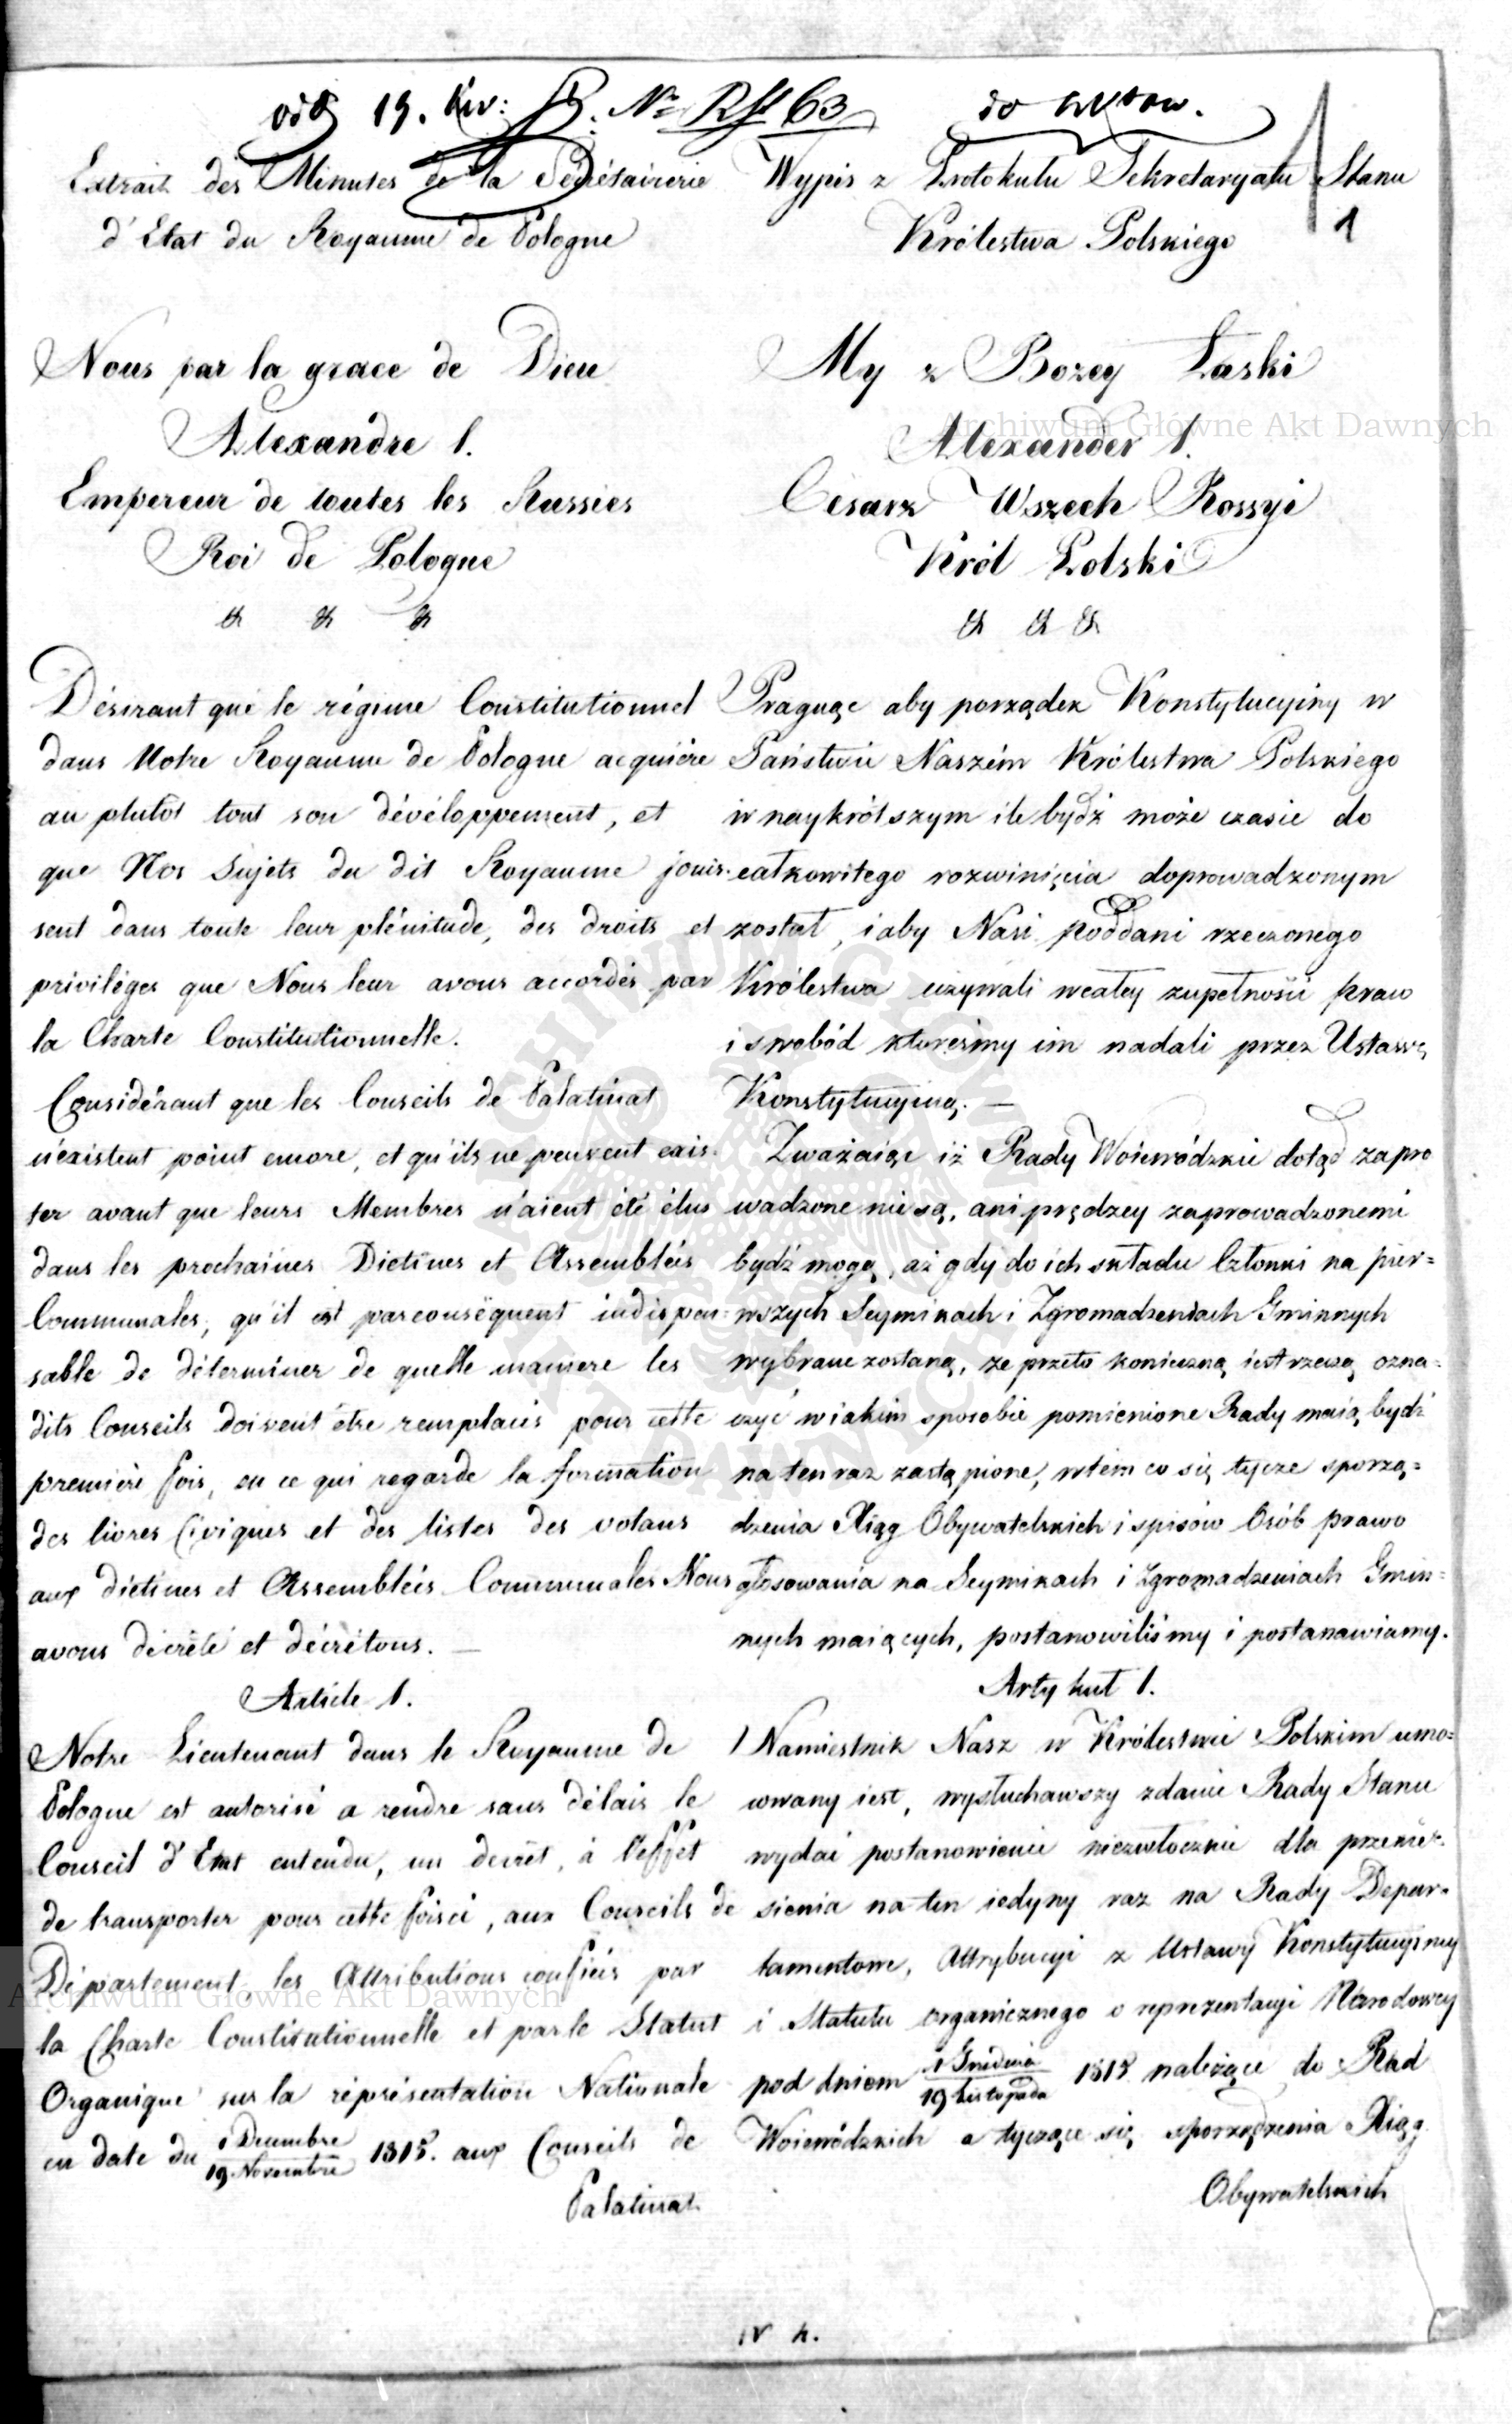 19. Kw: № RSt 63
1
Extrait des Minutes de la Secrétairerie
d'Etat du Royaume de Pologne
Nous par la grace de Dieu
Alexandre I.
Empereur de toutes les Russies
Roi de Pologne
& & &
Désirant que le régime Constitutionnel
dans Notre Royaume de Pologne acquière
au plutôt tout son dévéloppement, et
que Nos Sujets du dit Royaume jouis-
sent dans toute leur plénitude, des droits et
priviléges que Nous leur avons accordés par
la Charte Constitutionnelle.
Considérant que les Conseils de Palatinat
n'existent point encore, et qu'ils ne peuvent exis-
ter avant que leurs Membres n'aient été élus
dans les prochaines Diètines et Assemblées
Communales, qu'il est par conséquent indispen-
sable de déterminer de quelle maniere les
dits Conseils doivent être remplacés pour cette
première fois, en ce qui regarde la formation
des livres Civiques et des listes des votans
aux diètines et Assemblées Communales Nous
avons décrété et décrétons. —
Article 1.
Notre Lieutenant dans le Royaume de
Pologne est autorisé a rendre sans délais le
Conseil d'Etat entendu, un decrét, à l'effet
de transporter pour cette foisci, aux Conseils de
Département, les Attributions confiées par
la Charte Constitutionnelle et par le Statut
Organique sur la réprésentation Nationale
en date du 1 Decembre / 19 Novembre 1815. aux Conseils de
Palatinat
Wypis z Protokułu Sekretaryatu Stanu
Królestwa Polskiego
My z Bozey Łaski
Alexander I.
Cesarz Wszech Rossyi
Król Polski
& & &
Pragnąc aby porządek Konstytucyiny w
Państwie Naszém Królestwa Polskiego
w naykrótszym ile bydź może czasie do
całkowitego rozwinięcia doprowadzonym
został, i aby Nasi poddani rzeczonego
Królestwa używali w całey zupełności praw
i swobód któreśmy im nadali przez Ustawę
Konstytucyiną. —
Zważaiąc iż Rady Woiewódzkie dotąd zapro
wadzone nie są, ani prędzey zaprowadzonemi
bydź mogą, aż gdy do ich składu Członki na pier-
wszych Seymikach i Zgromadzeniach Gminnych
wybrane zostaną, że przeto konieczną iest rzeczą ozna-
czyć w iakim sposobie pomienione Rady maią bydź
na ten raz zastąpione, w tém co się tycze sporzą-
dzenia Xiąg Obywatelskich i spisów Osób prawo
głosowania na Seymikach i Zgromadzeniach Gmin-
nych maiących, postanowiliśmy i postanawiamy.
Artykuł 1.
Namiestnik Nasz w Królestwie Polskim umo-
cowany iest, wysłuchawszy zdanie Rady Stanu
wydać postanowienie niezwłocznie dla przenie-
sienia na ten iedyny raz na Rady Depar-
tamentowe, Attrybucyi z Ustawy Konstytucyiney
i Statutu organicznego o reprezentacyi Narodowey
pod dniem 1 Grudnia / 19 Listopada 1815 należące do Rad
Woiewódzkich a tyczące się sporządzenia Xiąg
Obywatelskich
Archiwum Główne Akt Dawnych
Archiwum Główne Akt Dawnych